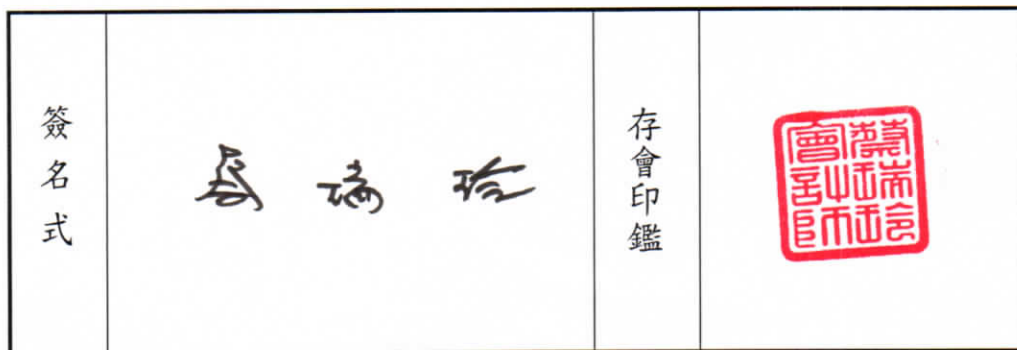 簽名式
瑞玲
存會印鑑
蔡瑞玲
會計師